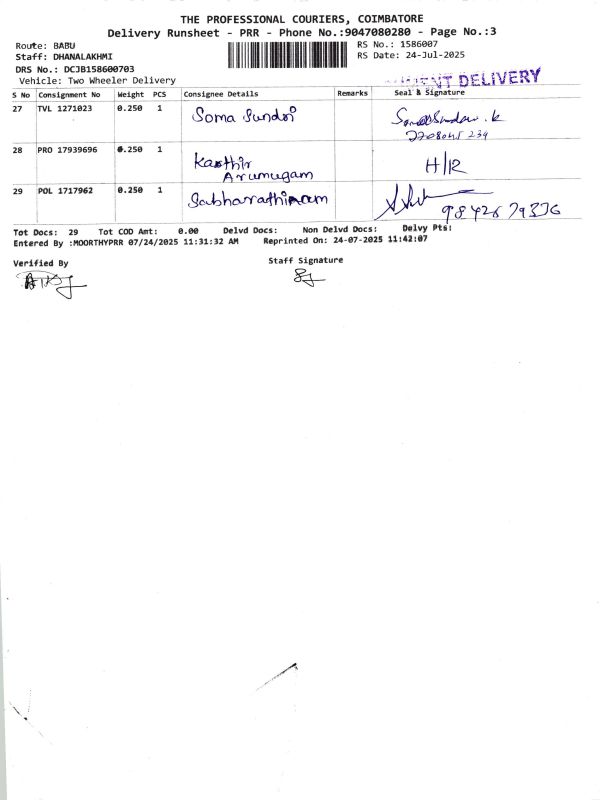 THE PROFESSIONAL COURIERS, COIMBATORE
Delivery Runsheet - PRR - Phone No.:9047080280 - Page No.:3
Route: BABU
RS No.: 1586007
Staff: DHANALAKHMI
RS Date: 24-Jul-2025
DRS No.: DCJB158600703
Vehicle: Two Wheeler Delivery
DELIVERY
S No Consignment No Weight PCS Consignee Details Remarks Seal & Signature
27 TVL 1271023 0.250 1 Soma Sundri
28 PRO 17939696 0.250 1 Karthir H/R
Arumugam
29 POL 1717962 0.250 1 Sabharathinam
Tot Docs: 29 Tot COD Amt: 0.00 Delvd Docs: Non Delvd Docs: Delvy Pts:
Entered By :MOORTHYPRR 07/24/2025 11:31:32 AM Reprinted On: 24-07-2025 11:42:07
Verified By
Staff Signature